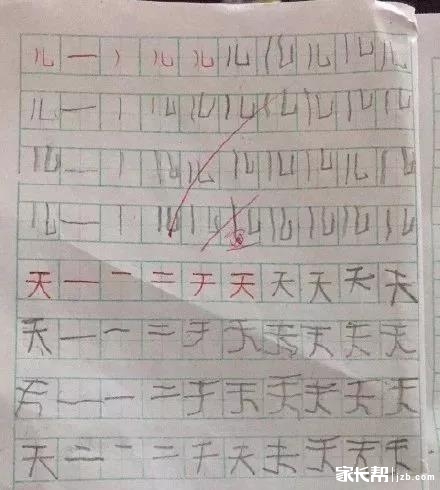 儿 一 丿 儿 儿 儿 儿 儿 儿 儿
儿 一 丿 儿 儿 儿 儿 儿 儿 儿
儿 一 丿 儿 儿 儿 儿 儿 儿 儿
儿 一 丿 儿 儿 儿 儿 儿 儿 儿
天 一 一 二 于 天 天 天 天 天
天 一 一 二 于 天 天 天 天 天
天 一 一 二 于 天 天 天 天 天
天 二 二 二 于 天 天 天 天 天
家长帮 jzb.com